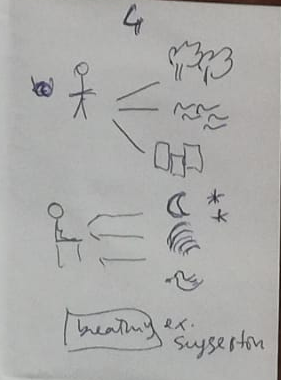 4
breathing ex.
suggestion